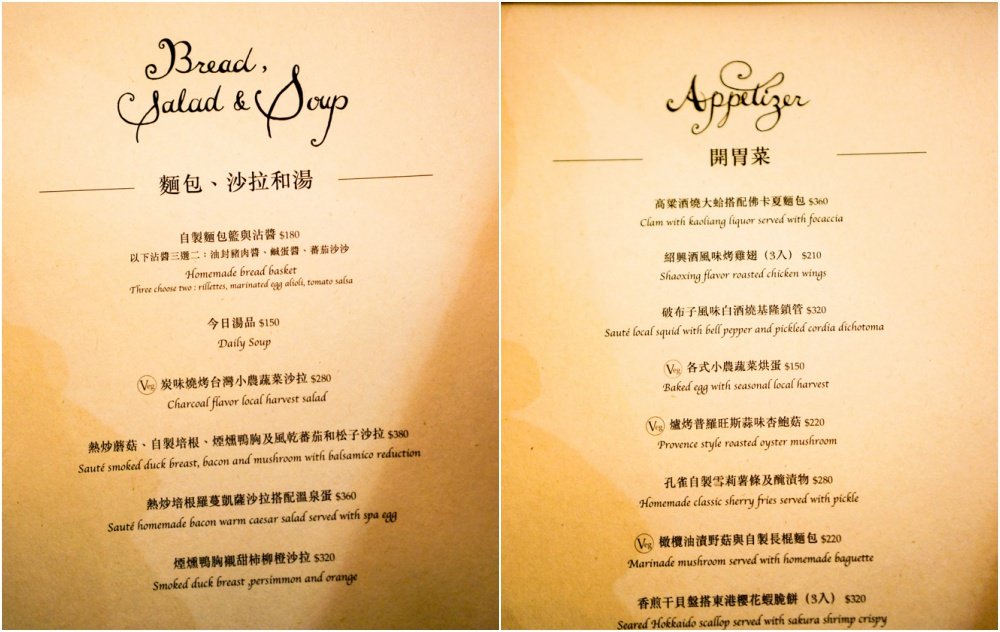 Bread,
Salad & Soup
麵包、沙拉和湯
自製麵包籃與沾醬 $180
以下沾醬三選二：油封豬肉醬、鹹蛋醬、蕃茄沙沙
Homemade bread basket
Three choose two : rillettes, marinated egg alioli, tomato salsa
今日湯品 $150
Daily Soup
Veg 炭味燒烤台灣小農蔬菜沙拉 $280
Charcoal flavor local harvest salad
熱炒蘑菇、自製培根、煙燻鴨胸及風乾蕃茄和松子沙拉 $380
Sauté smoked duck breast, bacon and mushroom with balsamico reduction
熱炒培根羅蔓凱薩沙拉搭配溫泉蛋 $360
Sauté homemade bacon warm caesar salad served with spa egg
煙燻鴨胸襯甜柿柳橙沙拉 $320
Smoked duck breast ,persimmon and orange
Appetizer
開胃菜
高粱酒燒大蛤搭配佛卡夏麵包 $360
Clam with kaoliang liquor served with focaccia
紹興酒風味烤雞翅（3入） $210
Shaoxing flavor roasted chicken wings
破布子風味白酒燒基隆鎖管 $320
Sauté local squid with bell pepper and pickled cordia dichotoma
Veg 各式小農蔬菜烘蛋 $150
Baked egg with seasonal local harvest
Veg 爐烤普羅旺斯蒜味杏鮑菇 $220
Provence style roasted oyster mushroom
孔雀自製雪莉薯條及醃漬物 $280
Homemade classic sherry fries served with pickle
Veg 橄欖油漬野菇與自製長棍麵包 $220
Marinade mushroom served with homemade baguette
香煎干貝盤搭東港櫻花蝦脆餅（3入） $320
Seared Hokkaido scallop served with sakura shrimp crispy